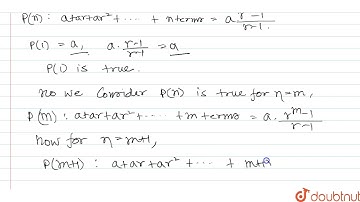 P(n) : a+ar+ar²+ ..... + n terms = a r -1 / r-1 .
P(1) = a, a. r-1 / r-1 = a
P(1) is true.
no we consider P(n) is true for n=m,
P(m) : a+ar+ar²+ ..... + m terms = a. r^m-1 / r-1
now for n = m+1,
P(m+1) : a+ar+ar²+ ..... + m+1
doubtnut